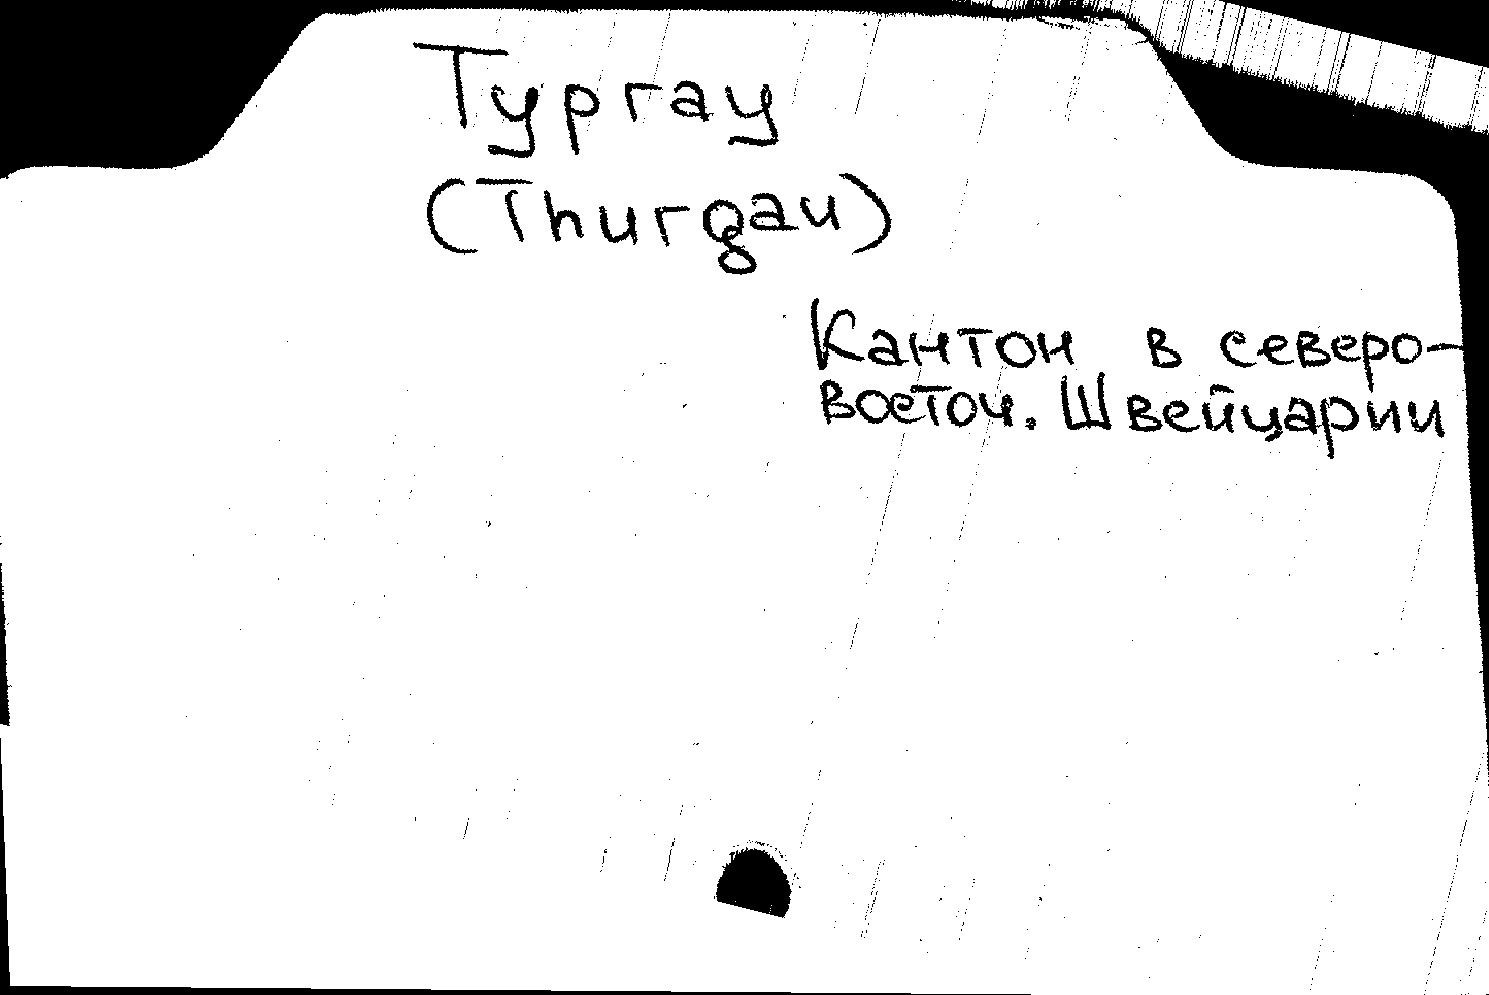 Тургау
(Thurgau)
Кантон в северо-
восточ. Швейцарии